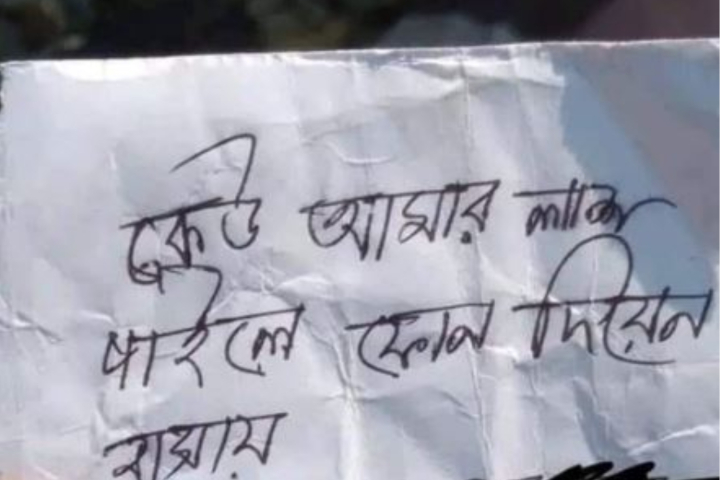 কেউ আমার লাশ
পাইলে ফোন দিয়েন
বাসায়